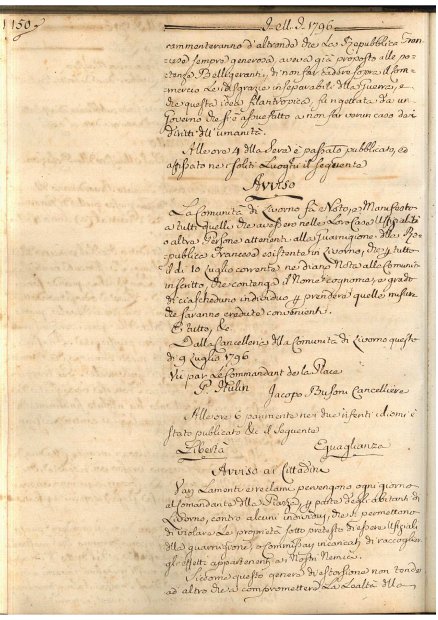 150
Dell' A. 1796
rammenteranno d'altronde che la Repubblica Fran=
cese sempre generosa, aveva già proposto alle po=
tenze Belligeranti, di non far cadere sopra il Com=
mercio le disgrazie inseparabili dlla Guerra, e
che questa idea filantropica fu rigettata da un
Governo che si è assuefatto a non far verun caso dei
diritti dll'umanità.
Alle ore 4 dlla Sera è passato pubblicato, ed
affissato nei soliti Luoghi il seguente
Avviso
La Comunità di Livorno fà Noto, e Manifesto
a tutti quelli, che avessero nelle Loro Case Uffiziali
o altre Persone attenenti alla Guarnigione dlla Re=
pubblica Francese esistente in Livorno, che p tutto
il dì 10 Luglio corrente ne diano Nota alla Comunità
in scritto, che contenga il Nome, e cognome, e grado
di ciascheduno individuo p prendere quelle misure
che saranno credute convenienti.
E tutto, &c
Dalla Cancelleria dlla Comunità di Livorno questo
dì 9 Luglio 1796
Vu par Le Commandant de la Place
P. Hulin
Jacopo Busoni Cancelliere
Alle ore 6 parimente nei due riferiti idiomi è
stato pubblicato &c il seguente
Libertà Eguaglianza
Avviso ai Cittadini
Varj Lamenti e reclami pervengono ogni giorno
al Comandante dlla Piazza p parte degli abitanti di
Livorno, contro alcuni individui, che si permettono
di violare le proprietà sotto pretesto di essere Uffiziali
dlla guarnigione, o Commissarj incaricati di raccoglier
gli effetti appartenenti ai Nostri Nemici.
Siccome questo genere di estorsione non tende
ad altro che a compromettere La Lealtà dlla